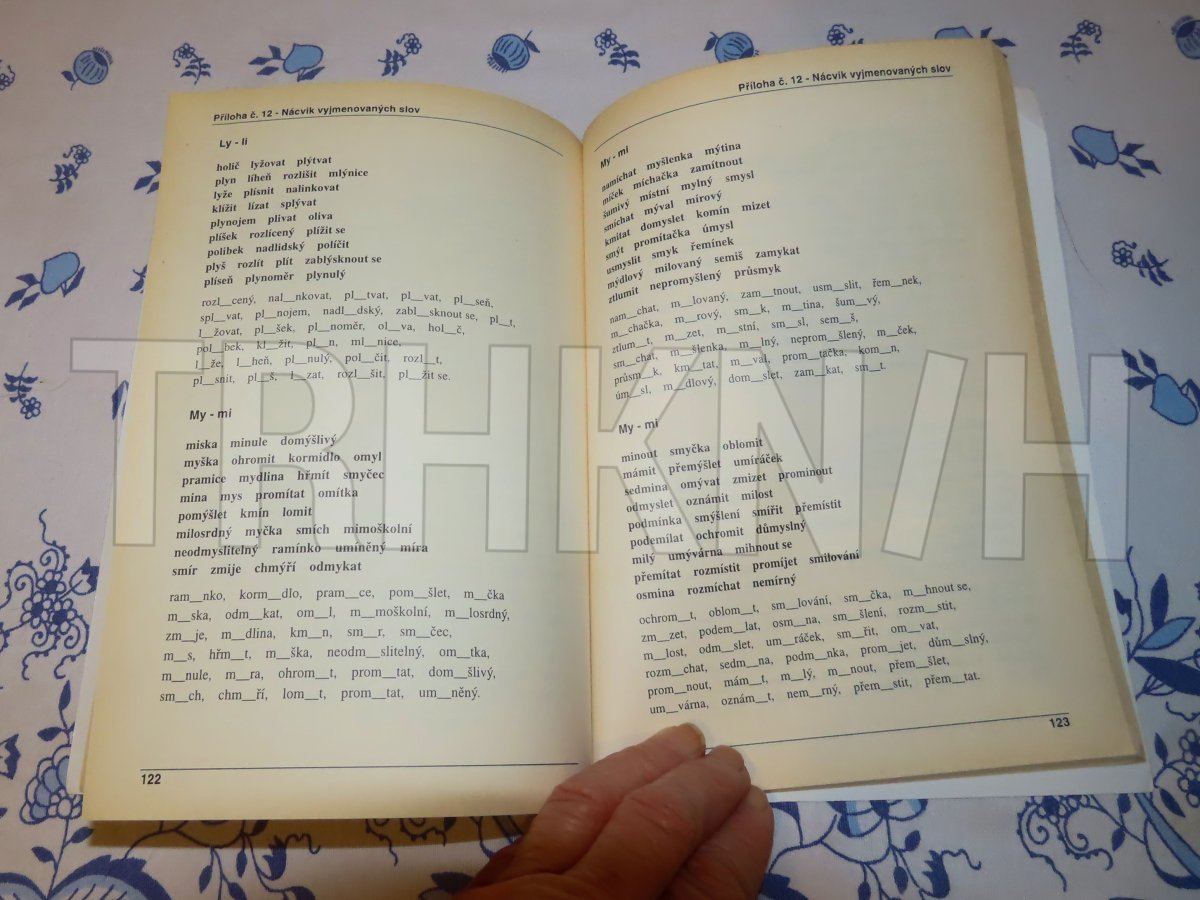 Příloha č. 12 - Nácvik vyjmenovaných slov
Ly - li
holič lyžovat plýtvat
plyn líheň rozlišit mlýnice
lyže plísnit nalinkovat
klížit lízat splývat
plynojem plivat oliva
plíšek rozlícený plížit se
polibek nadlidský políčit
plyš rozlít plít zablýsknout se
plíseň plynoměr plynulý
rozl__cený, nal__nkovat, pl__tvat, pl__vat, pl__seň,
spl__vat, pl__nojem, nadl__dský, zabl__sknout se, pl__t,
l__žovat, pl__šek, pl__noměr, ol__va, hol__č,
pol__bek, kl__žit, pl__n, ml__nice,
l__že, l__heň, pl__nulý, pol__čit, rozl__t,
pl__snit, pl__š, l__zat, rozl__šit, pl__žit se.
My - mi
miska minule domýšlivý
myška ohromit kormidlo omyl
pramice mydlina hřmít smyčec
mina mys promítat omítka
pomýšlet kmín lomit
milosrdný myčka smích mimoškolní
neodmyslitelný ramínko umíněný míra
smír zmije chmýří odmykat
ram__nko, korm__dlo, pram__ce, pom__šlet, m__čka
m__ska, odm__kat, om__l, m__moškolní, m__losrdný,
zm__je, m__dlina, km__n, sm__r, sm__čec,
m__s, hřm__t, m__ška, neodm__slitelný, om__tka,
m__nule, m__ra, ohrom__t, prom__tat, dom__šlivý,
sm__ch, chm__ří, lom__t, prom__tat, um__něný.
122
Příloha č. 12 - Nácvik vyjmenovaných slov
My - mi
namíchat myšlenka mýtina
míček míchačka zamítnout
šumivý místní mylný smysl
smíchat mýval mírový
kmitat domyslet komín mizet
smýt promítačka úmysl
usmyslit smyk řemínek
mýdlový milovaný semiš zamykat
ztlumit nepromyšlený průsmyk
nam__chat, m__lovaný, zam__tnout, usm__slit, řem__nek,
m__chačka, m__rový, sm__k, m__tina, šum__vý,
ztlum__t, m__zet, m__stní, sm__sl, sem__š,
sm__chat, m__šlenka, m__lný, neprom__šlený, m__ček,
průsm__k, km__tat, m__val, prom__tačka, kom__n,
úm__sl, m__dlový, dom__slet, zam__kat, sm__t.
My - mi
minout smyčka oblomit
mámit přemýšlet umíráček
sedmina omývat zmizet prominout
odmyslet oznámit milost
podmínka smýšlení smířit přemístit
podemílat ochromit důmyslný
milý umývárna mihnout se
přemítat rozmístit promíjet smilování
osmina rozmíchat nemírný
ochrom__t, oblom__t, sm__lování, sm__čka, m__hnout se,
zm__zet, podem__lat, osm__na, sm__šlení, rozm__stit,
m__lost, odm__slet, um__ráček, sm__řit, om__vat,
rozm__chat, sedm__na, podm__nka, prom__jet, dům__slný,
prom__nout, mám__t, m__lý, m__nout, přem__šlet,
um__várna, oznám__t, nem__rný, přem__stit, přem__tat.
123
TRHKNIH